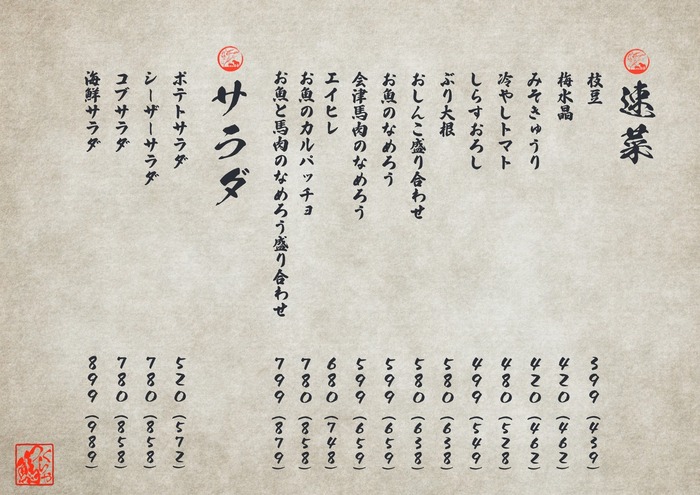 速菜
枝豆 399(439)
梅水晶 420(462)
みそきゅうり 420(462)
冷やしトマト 480(528)
しらすおろし 499(549)
ぶり大根 580(638)
おしんこ盛り合わせ 580(638)
お魚のなめろう 599(659)
会津馬肉のなめろう 599(659)
エイヒレ 680(748)
お魚のカルパッチョ 780(858)
お魚と馬肉のなめろう盛り合わせ 799(879)
サラダ
ポテトサラダ 520(572)
シーザーサラダ 780(858)
コブサラダ 780(858)
海鮮サラダ 899(989)